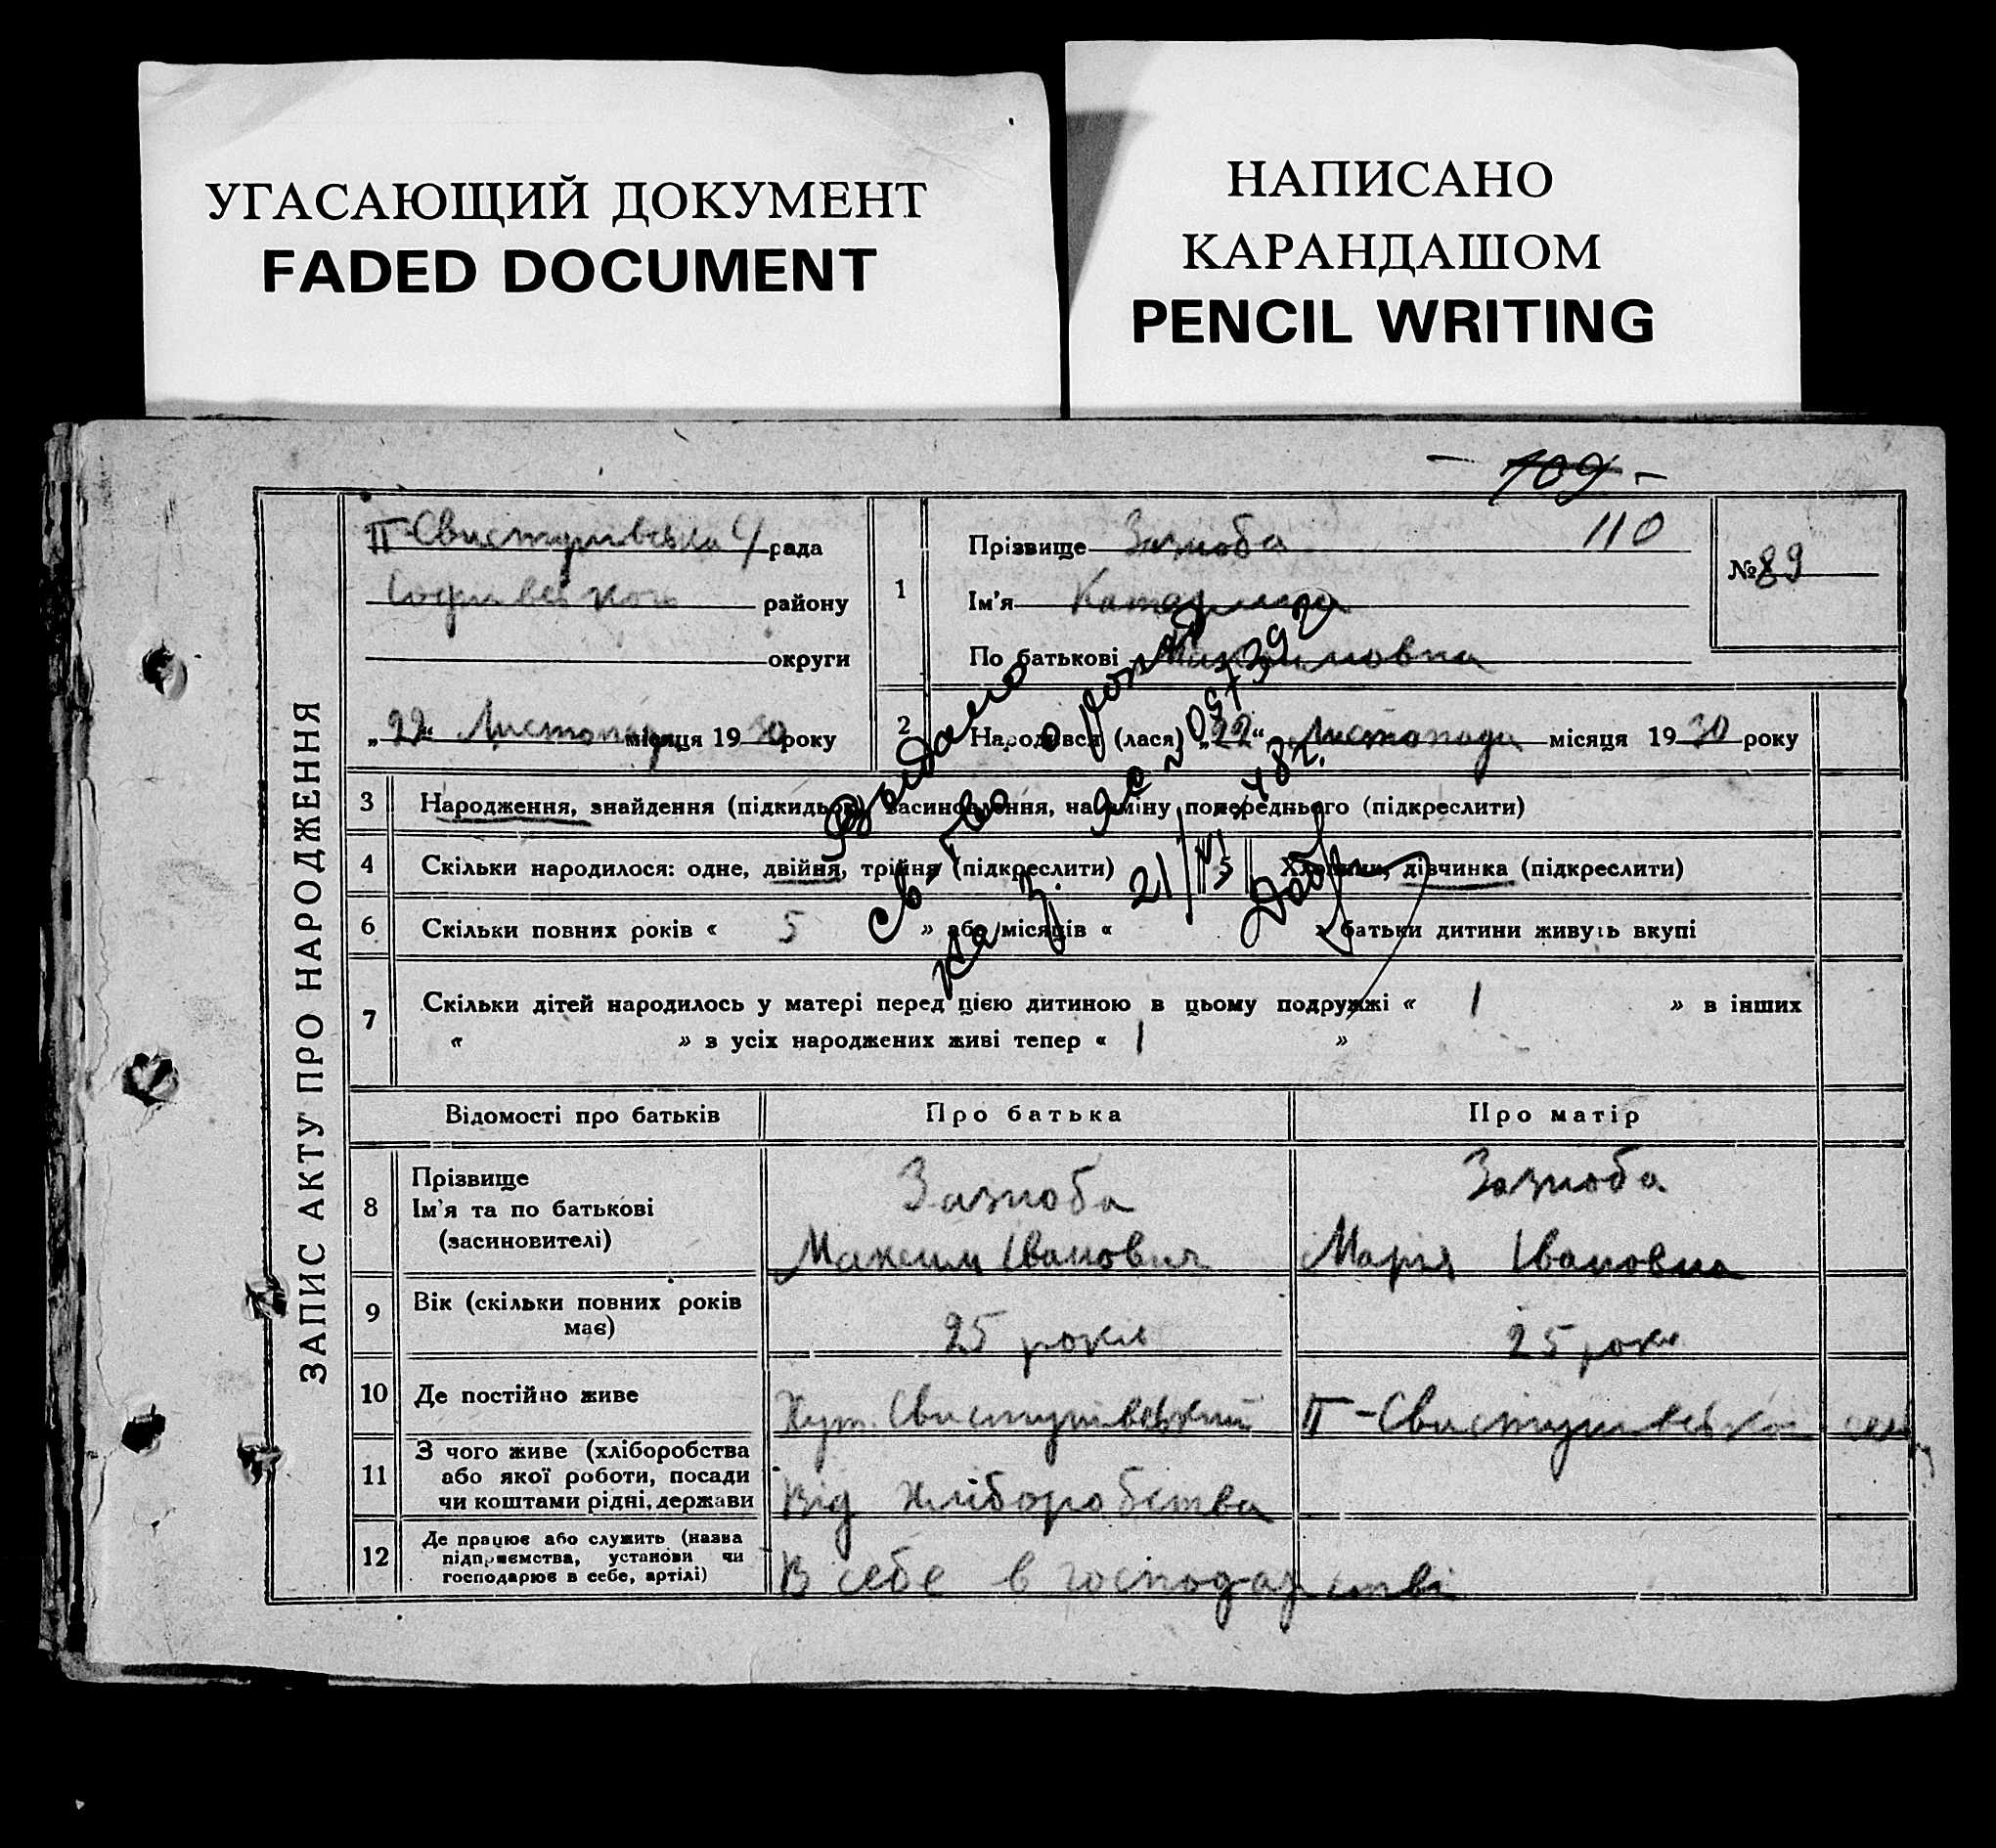 УГАСАЮЩИЙ ДОКУМЕНТ
FADED DOCUMENT
НАПИСАНО
КАРАНДАШОМ
PENCIL WRITING
- 109 -
110
ЗАПИС АКТУ ПРО НАРОДЖЕННЯ
П-Свистунівська С/рада
Софиевської району
округи
„22“ Листопада місяця 1930 року
1
Прізвище Зазноба
Ім'я Катерина
По батькові Максимовна
№ 89
2 Народився (лася) „22“ Листопада місяця 1930 року
3 Народження, знайдення (підкидьок) засиновлення, на зміну попереднього (підкреслити)
4 Скільки народилося: одне, двійня, трійня (підкреслити)
5 Хлопчик, дівчинка (підкреслити)
6 Скільки повних років « 5 » або місяців « » батьки дитини живуть вкупі
7 Скільки дітей народилось у матері перед цією дитиною в цьому подружжі « 1 » в інших
« » з усіх народжених живі тепер « 1 »
Выдано
св-тво о рожд
Відомості про батьків Про батька Про матір
8 Прізвище
Ім'я та по батькові
(засиновителі)
Зазноба
Максим Іванович
Зазноба
Марія Івановна
9 Вік (скільки повних років
має)
25 років
25 рокі
10 Де постійно живе Хут. Свистунівський П-Свистунівської
11 З чого живе (хліборобства
або якої роботи, посади
чи коштами рідні, держави
Від хліборобства
12 Де працює або служить (назва
підприємства, установи чи
господарює в себе, артілі)
В себе в господарстві